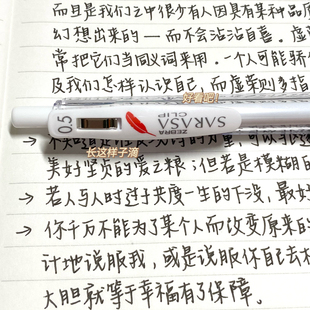 而且是我们之中很少有人因具有某种品质
幻想出来的—而不会沾沾自喜。虚
常把它们当同义词来用.一个人可能骄傲
及我们怎样认识自己,而虚荣则多指
好看吧!
0.5
SARASA
CLIP
ZEBRA
长这样子滴
美好坚贞的爱之粮;但若是模糊的
→ 若人与人时过于共度一生的干没,最好
→ 你千万不能为了某个人而改变原来的
计地说服我,或是说服你自己去相
大胆就等于幸福有了保障。